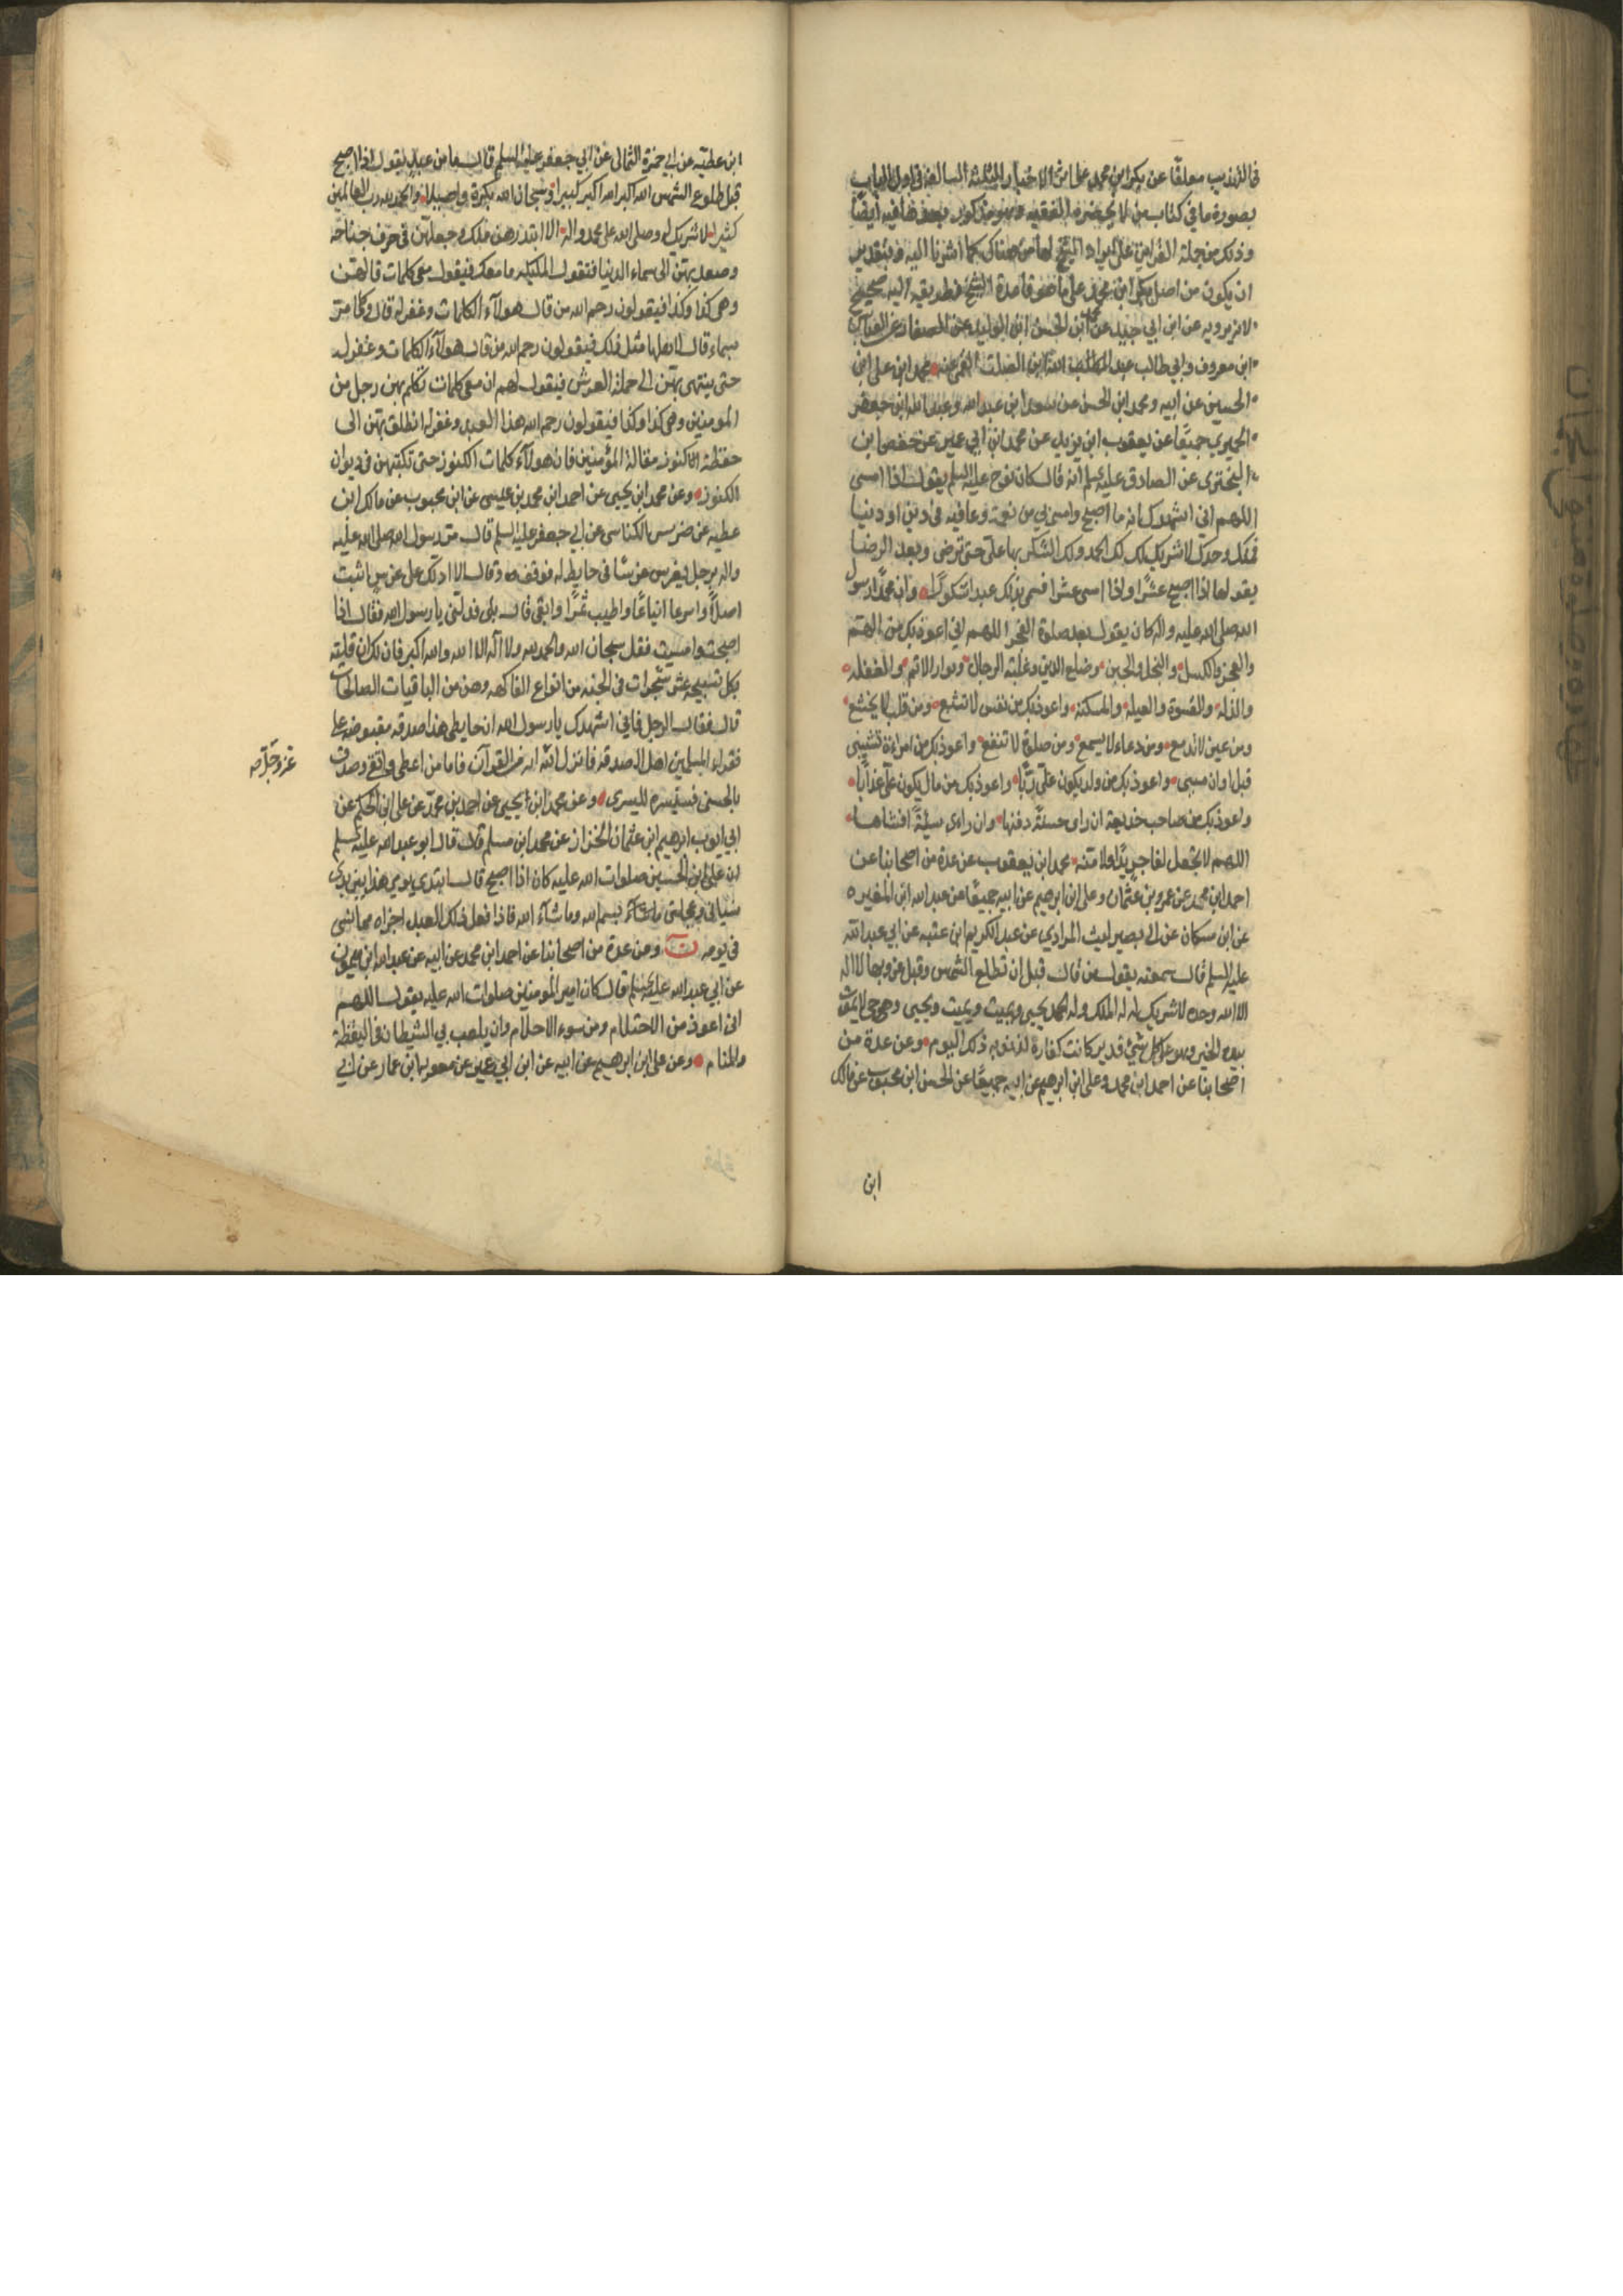 في التهذيب معلقا عن بكر ابن محمد على اثر الاخبار الثلثة السالفة في اول الباب
بصورة ما في كتاب من لا يحضره الفقيه وهو مذكور بعدها فيه ايضا
وذلك من جملة القراين على ايراد الشيخ لها من هناك كما اشرنا اليه فبتقدير
ان يكون من اصل بكر ابن محمد على ما هو قاعدة الشيخ فطريقه اليه صحيح
لانه يرويه عن ابن ابي جيد عن محمد ابن الحسن ابن الوليد عن الصفار عن العباس
ابن معروف وابي طالب عبد الله ابن الصلت القمي عنه محمد ابن على ابن
الحسين عن ابيه ومحمد ابن الحسن عن سعد ابن عبد الله وعبد الله ابن جعفر
الحميري جميعا عن يعقوب ابن يزيد عن محمد ابن ابي عمير عن حفص ابن
البختري عن الصادق عليه السلم انه قال كان نوح عليه السلم يقول اذا امسى
اللهم اني اشهدك انه ما اصبح وامسى بي من نعمة وعافية في دين او دنيا
فمنك وحدك لا شريك لك لك الحمد ولك الشكر بها على حتى ترضى وبعد الرضا
يقولها اذا اصبح عشرا واذا امسى عشرا فسمى بذلك عبدا شكورا وان محمدا رسول
الله صلى الله عليه واله كان يقول بعد صلوة الفجر اللهم اني اعوذ بك من الهم
والعجز والكسل والبخل والجبن وضلع الدين وغلبة الرجال وبوار الايم والغفلة
والذلة والقسوة والعيلة والمسكنة واعوذ بك من نفس لا تشبع ومن قلب لا يخشع
ومن عين لا تدمع ومن دعاء لا يسمع ومن صلوة لا تنفع واعوذ بك من امراة تشيبني
قبل اوان مشيبي واعوذ بك من ولد يكون على ربا واعوذ بك من مال يكون على عذابا
واعوذ بك من صاحب خديعة ان راى حسنة دفنها وان راى سيئة افشاها
اللهم لا تجعل لفاجر يدا ولا منة محمد ابن يعقوب عن عدة من اصحابنا عن
احمد ابن محمد عن عمرو بن عثمان وعلى ابن ابرهيم عن ابيه جميعا عن عبد الله ابن المغيره
عن ابن مسكان عن ابي بصير ليث المرادي عن عبد الكريم ابن عتبه عن ابي عبد الله
عليه السلم قال سمعته يقول من قال قبل ان تطلع الشمس وقبل غروبها لا اله
الا الله وحده لا شريك له له الملك وله الحمد يحيي ويميت ويميت ويحيي وهو حي لا يموت
بيده الخير وهو على كل شيء قدير كانت كفارة لذنوبه ذلك اليوم وعن عدة من
اصحابنا عن احمد ابن محمد وعلى ابن ابرهيم عن ابيه جميعا عن الحسن ابن محبوب عن مالك
ابن
ابن عطيه عن ابي حمزة الثمالى عن ابي جعفر عليه السلم قال ما من عبد يقول اذا اصبح
قبل طلوع الشمس الله اكبر الله اكبر كبيرا وسبحان الله بكرة واصيلا والحمد لله رب العالمين
كثيرا لا شريك له وصلى الله على محمد واله الا ابتدرهن ملك وجعلهن في جوف جناحه
وصعد بهن الى سماء الدنيا فتقول الملئكة ما معك فيقول معي كلمات قالهن
وهي كذا وكذا فيقولون رحم الله من قال هولآء الكلمات وغفر له قال وكلما مر
بسماء قال لاهلها مثل ذلك فيقولون رحم الله من قال هولآء الكلمات وغفر له
حتى ينتهى بهن الى حملة العرش فيقول لهم ان معي كلمات تكلم بهن رجل من
المومنين وهي كذا وكذا فيقولون رحم الله هذا العبد وغفر له انطلق بهن الى
حفظة كنوز مقالة المؤمنين فان هولآء كلمات الكنوز حتى تكتبهن في ديوان
الكنوز وعن محمد ابن يحيى عن احمد ابن محمد بن عيسى عن ابن محبوب عن مالك ابن
عطيه عن ضريس الكناسى عن ابي جعفر عليه السلم قال مر رسول الله صلى الله عليه
واله برجل يغرس غرسا في حايط له فوقف وقال الا ادلك على غرس اثبت
اصلا واسرع ايناعا واطيب ثمرا وابقى قال بلى فدلني يا رسول الله فقال اذا
اصبحت وامسيت فقل سبحان الله والحمد لله ولا اله الا الله والله اكبر فان لك ان قلته
بكل تسبيحه عشر شجرات في الجنه من انواع الفاكهه وهن من الباقيات الصالحات
قال فقال الرجل فاني اشهدك يا رسول الله ان حايطى هذا صدقه مقبوضه على
فقراء المسلمين اهل الصدقه فانزل الله ايه من القرآن فاما من اعطى واتقى وصدق
عز وجل صه
بالحسنى فسنيسره لليسرى وعن محمد ابن يحيى عن احمد بن محمد عن على ابن الحكم عن
ابي ايوب ابرهيم ابن عثمان الخزاز عن محمد ابن مسلم قال قال ابو عبد الله عليه السلم
ان على ابن الحسين صلوات الله عليه كان اذا اصبح قال ابتدى يومي هذا بين يدى
نسياني وعجلتي بسم الله وما شآء الله فاذا فعل ذلك العبد اجزاه مما نسي
في يومه ومن عدة من اصحابنا عن احمد ابن محمد عن ابيه عن عبد الله ابن ميمون
عن ابي عبد الله عليه السلم قال كان امير المومنين صلوات الله عليه يقول اللهم
اني اعوذ من الاحتلام ومن سوء الاحلام وان يلعب بي الشيطان في اليقظة
والمنام وعن على ابن ابرهيم عن ابيه عن ابن ابي عمير عن معويه ابن عمار عن ابي